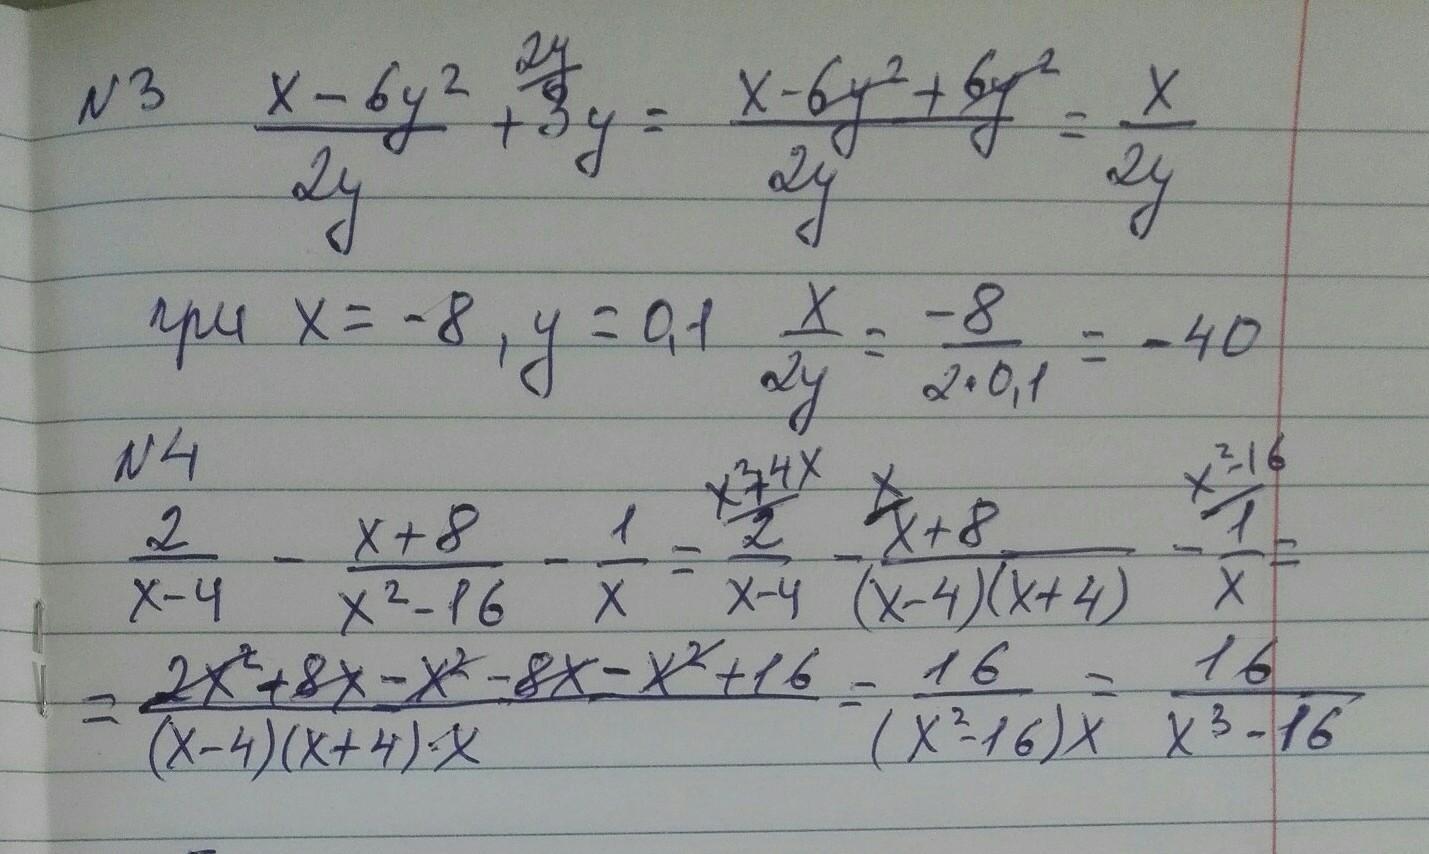 N3 (x - 6y²)/(2y) + 3y^(2y) = (x - 6y² + 6y²)/(2y) = x/(2y)
при x = -8, y = 0,1 x/(2y) = -8/(2·0,1) = -40
N4
2/(x-4) - (x+8)/(x²-16) - 1/x = 2^(x²+4x)/(x-4) - (x+8)^(x)/((x-4)(x+4)) - 1^(x²-16)/x =
= (2x² + 8x - x² - 8x - x² + 16)/((x-4)(x+4)·x) = 16/((x²-16)x) = 16/(x³-16)